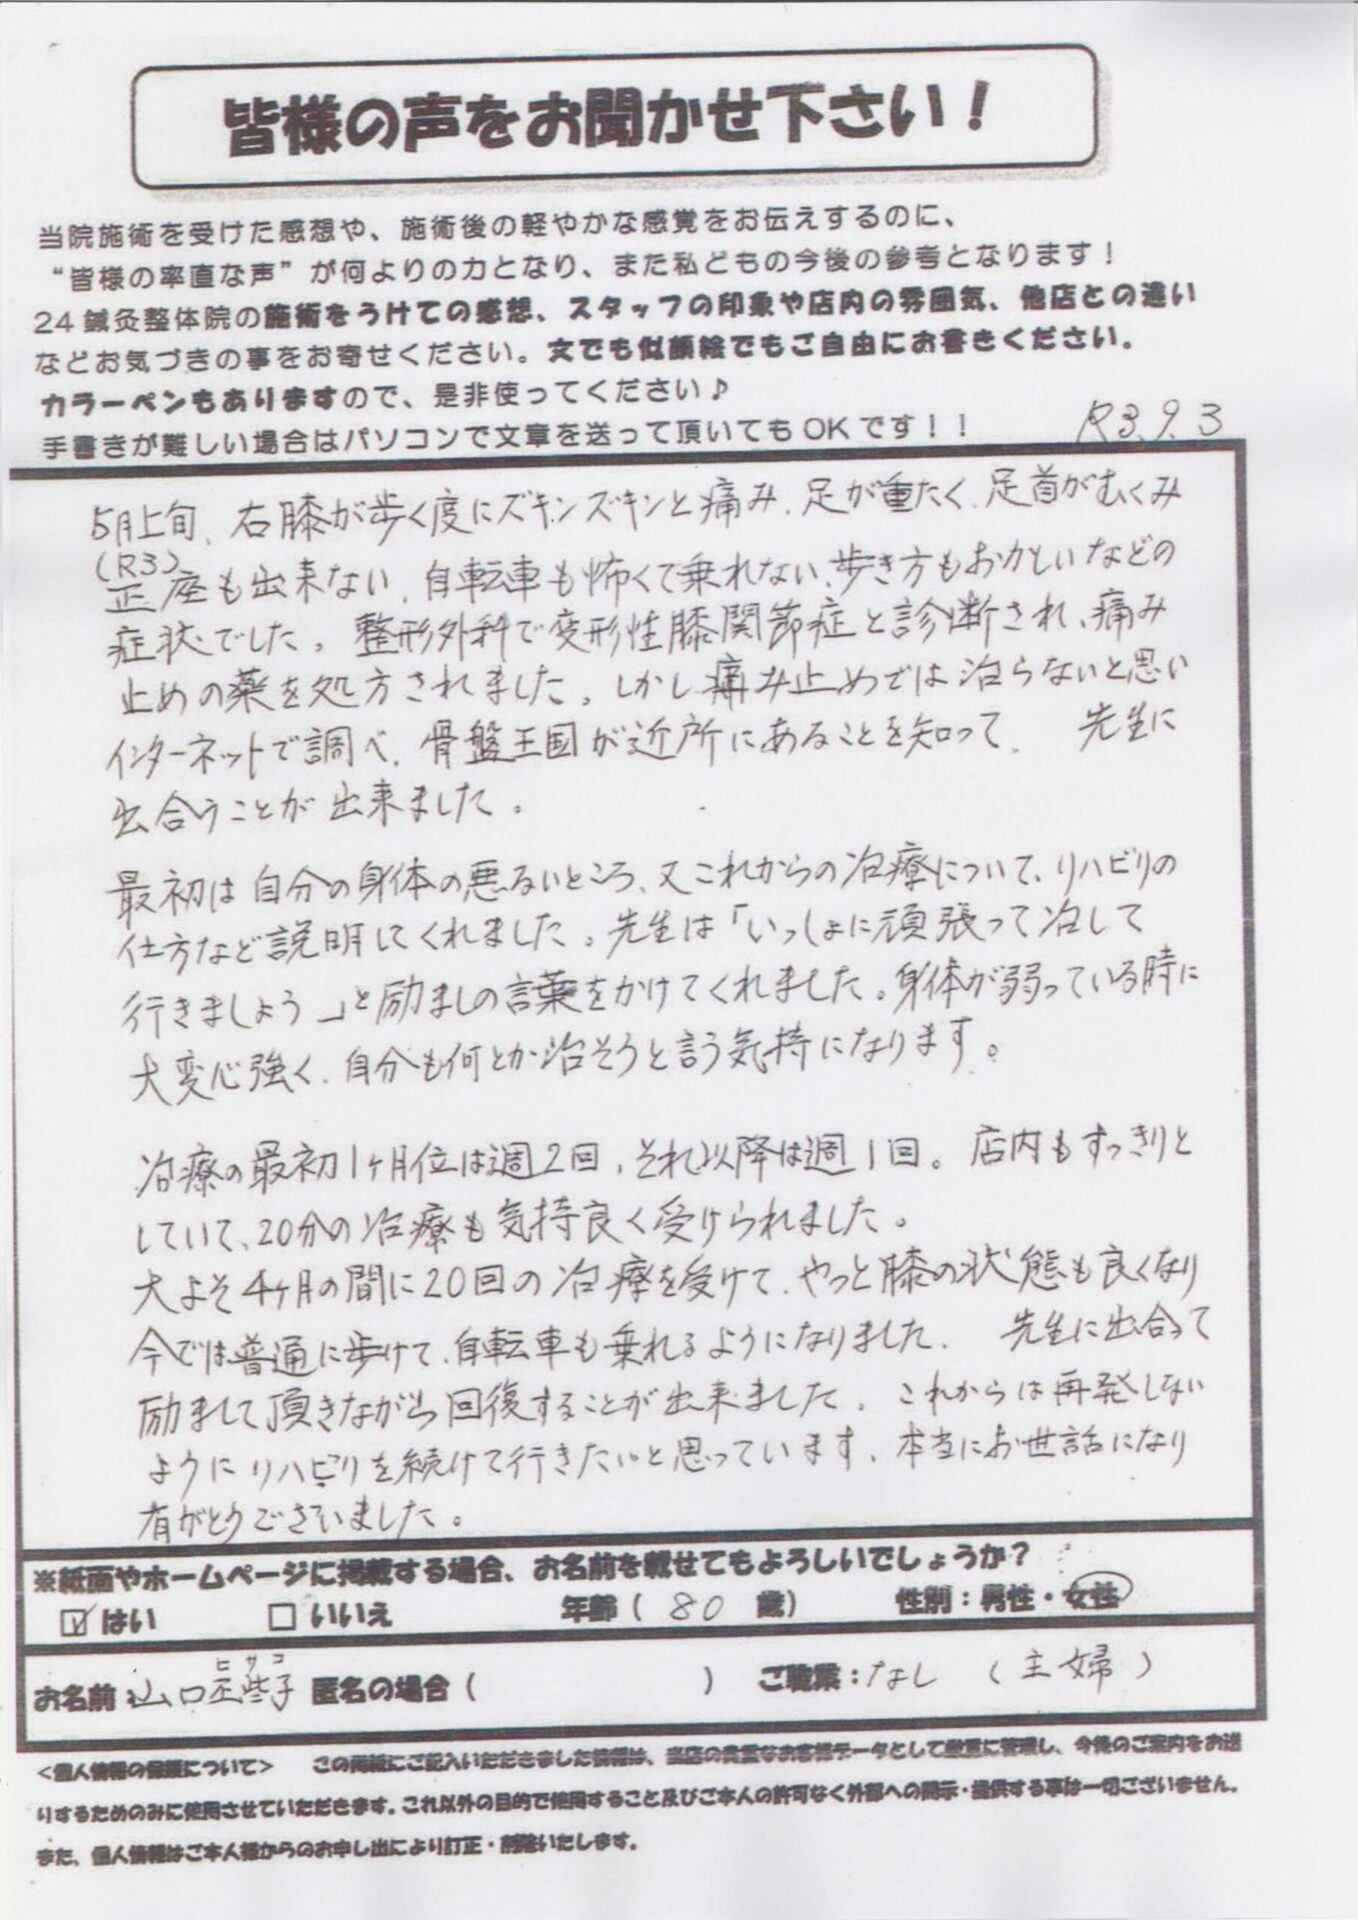 皆様の声をお聞かせ下さい！
当院施術を受けた感想や、施術後の軽やかな感覚をお伝えするのに、
“皆様の率直な声”が何よりの力となり、また私どもの今後の参考となります！
24鍼灸整体院の施術をうけての感想、スタッフの印象や店内の雰囲気、他店との違い
などお気づきの事をお寄せください。文でも似顔絵でもご自由にお書きください。
カラーペンもありますので、是非使ってください♪
手書きが難しい場合はパソコンで文章を送って頂いてもOKです！！
R3.9.3
5月上旬、右膝が歩く度にズキンズキンと痛み、足が重たく、足首がむくみ
(R3)
正座も出来ない、自転車も怖くて乗れない、歩き方もおかしいなどの
症状でした。整形外科で変形性膝関節症と診断され、痛み
止めの薬を処方されました。しかし痛み止めでは治らないと思い
インターネットで調べ、骨盤王国が近所にあることを知って、 先生に
出合うことが出来ました。
最初は自分の身体の悪るいところ、又これからの治療について、リハビリの
仕方など説明してくれました。先生は「いっしょに頑張って治して
行きましょう」と励ましの言葉をかけてくれました。身体が弱っている時に
大変心強く、自分も何とか治そうと言う気持になります。
治療の最初1ヶ月位は週2回、それ以降は週1回。店内もすっきりと
していて、20分の治療も気持良く受けられました。
大よそ4ヶ月の間に20回の治療を受けて、やっと膝の状態も良くなり
今では普通に歩けて、自転車も乗れるようになりました。 先生に出合って
励まして頂きながら回復することが出来ました。これからは再発しない
ようにリハビリを続けて行きたいと思っています。本当にお世話になり
有がとうございました。
※紙面やホームページに掲載する場合、お名前を載せてもよろしいでしょうか？
☑はい □いいえ 年齢(80 歳) 性別：男性・女性
ヒサコ
お名前 山口 子 匿名の場合( ) ご職業：なし (主婦)
<個人情報の保護について> この用紙にご記入いただきました情報は、当店の貴重なお客様データとして厳重に管理し、今後のご案内をお送
りするためのみに使用させていただきます。これ以外の目的で使用すること及びご本人の許可なく外部への開示・提供する事は一切ございません。
また、個人情報はご本人様からのお申し出により訂正・削除いたします。